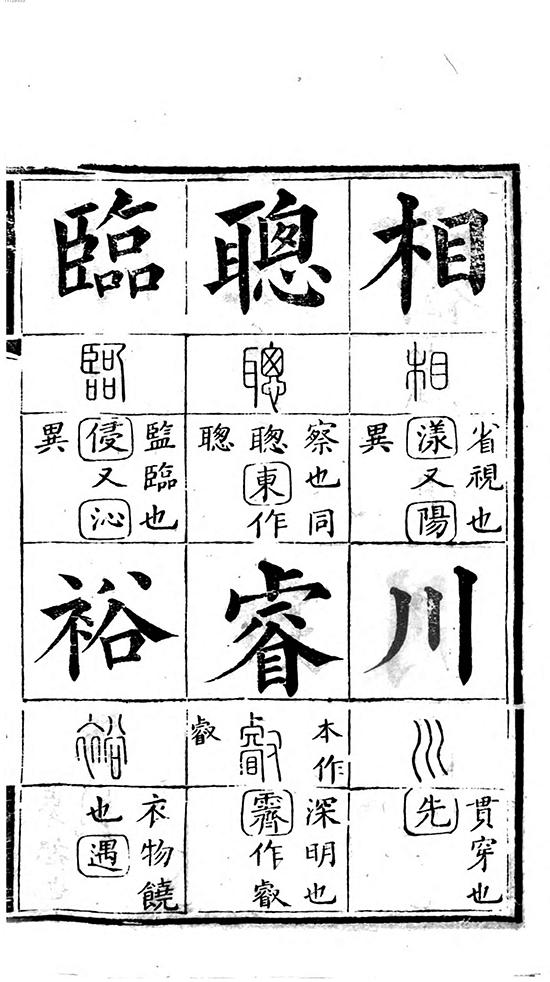 相
相
省視也
漾又陽
異
川
川
貫穿也
先
聰
聰
察也同
聦東作
聰
睿
本作
叡
叡
深明也
霽作叡
臨
臨
監臨也
侵又沁
異
裕
裕
衣物饒
也遇